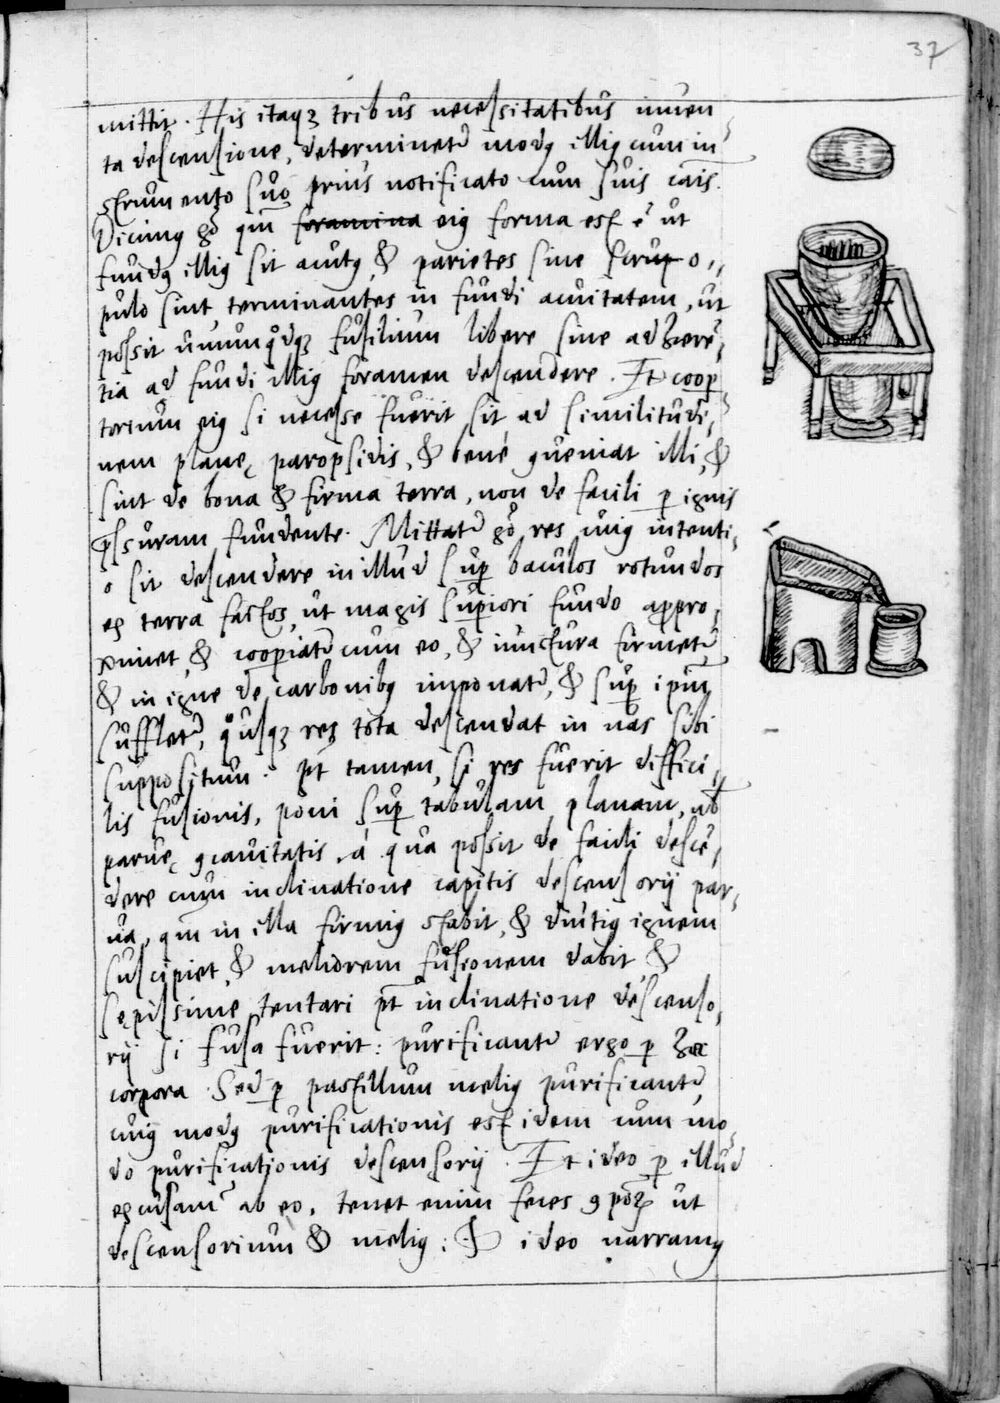 37
mittit. His itaqȝ tribus necessitatibus inuen
ta descensione, determinet᷒ modꝰ illiꝰ cum in
strumento suo prius notificato cum suis cais̄.
Dicimꝰ gͦ qm̄ foramina eiꝰ forma est ē ut
fundꝰ illiꝰ sit acutꝰ & parietes sine scrup o,,
pulo sint, terminantes in fundi acuitatem, ut
possit unumqͦdqȝ fusilium libere sine adhærē,
tia ad fundi illiꝰ foramen descendere. Et coop̱
torium eiꝰ si necesse fuerit, sit ad similitudi,
nem planę paropsidis, & bene ꝯueniat illi, &
sint de bona & firma terra, non de facili ꝑ ignis
p̄ssuram fundente. Mittat᷒ gͦ res cuiꝰ intenti,
o sit descendere in illud suꝑ baculos rotundos
ex terra factos, ut magis suꝑiori fundo aꝓpro,
ximet & cooꝑiat᷒ cum eo, & iunctura firmet᷒
& in igne de carbonibꝰ imponat᷒, & suꝑ ipm̄
sufflet᷒, qͦusqȝ res tota descendat in uas sibi
suppositum. pt̄ tamen, si res fuerit diffici,
lis fusionis, poni suꝑ tabulam planam, ub̄
paruę ꝯcauitatis, à qua possit de facili descē,
dere cum inclinatione capitis descensorij par,
ua, qm̄ in illa firmiꝰ stabit, & diutiꝰ ignem
suscipiet, & meliorem fusionem dabit, &
sępissime tentari pt̄ inclinatione descenso,
rij si fusa fuerit: purificant᷒ ergo ꝑ hæc
corpora. Sed ꝑ pastillum meliꝰ purificant᷒,
cuiꝰ modꝰ purificationis est idem cum mo,
do purificationis descensorij. Et ideo ꝑ illud
excusam᷒ ab eo, tenet enim feces ꝯpoꝝ ut
descensorium & meliꝰ: & ideo narramꝰ